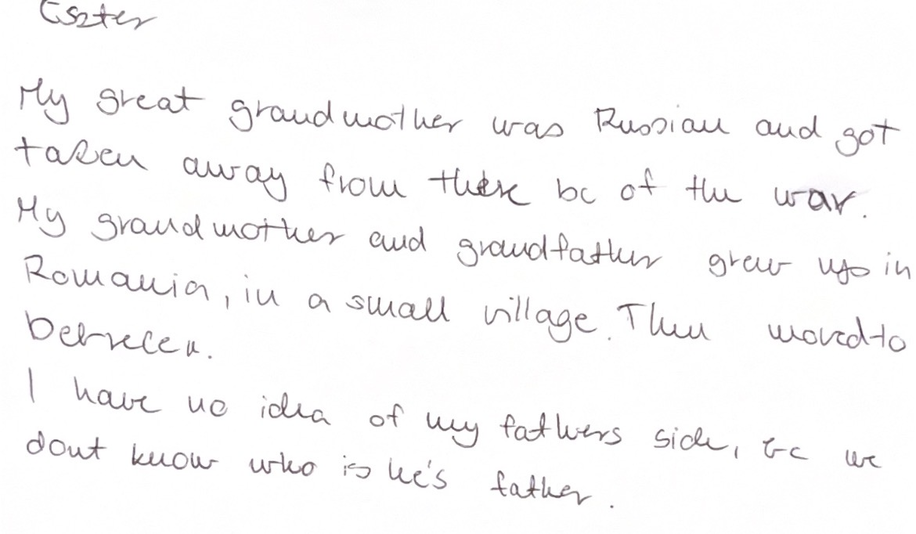 Eszter
My great grandmother was Russian and got
taken away from there bc of the war.
My grandmother and grandfather grew up in
Romania, in a small village. Then moved to
Debrecen.
I have no idea of my fathers side, bc we
dont know who is he's father.